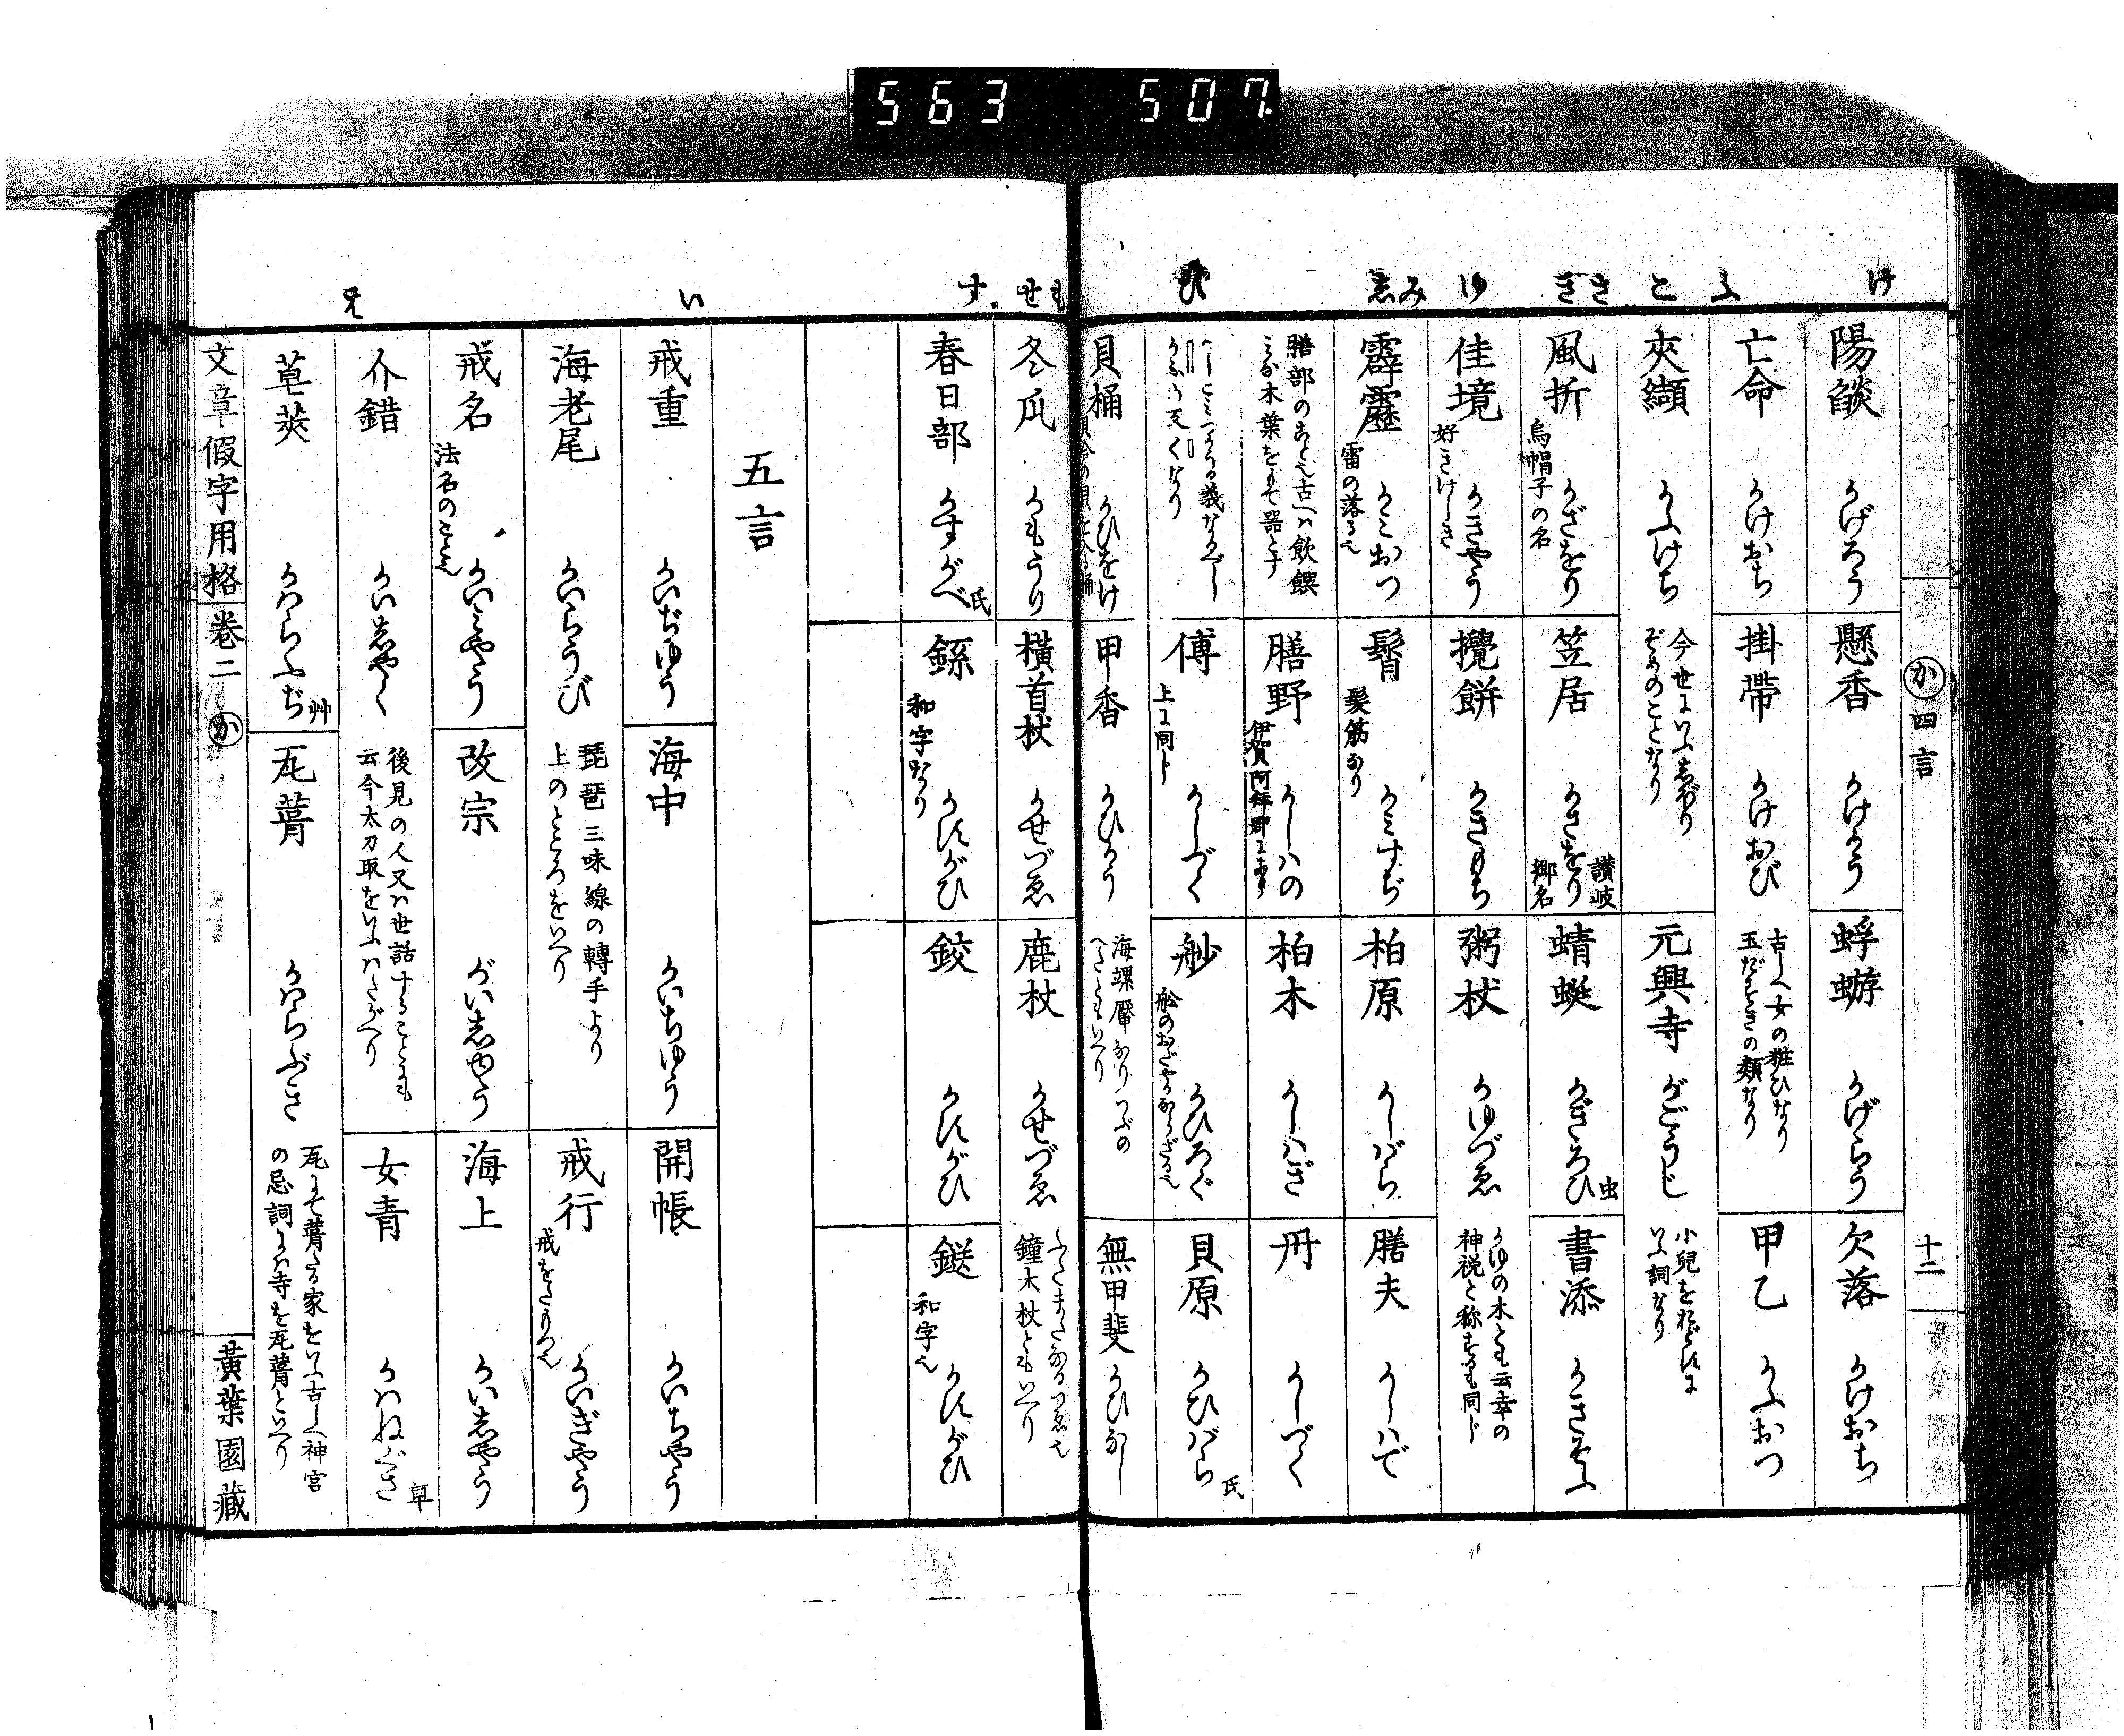 563 507.
け
ふ
と
さ
き
ゆ
み
ひ
か 四言
十二
陽燄 かげろう
懸香 かけかう
蜉蝣 かげらう
欠落 かけおち
亡命 かけおち
掛帶 かけおび
古しへ女の粧ひなり
玉だすきの類なり
甲乙 かふおつ
夾纈 かふけち
今世にいふしぼり
ぞめのことなり
元興寺 がごうじ
小兒をおどすに
いふ詞なり
風折 烏帽子の名 かざをり
笠居 かさをり 讃岐
郷名
蜻蜒 かぎろひ 虫
書添 かきそふ
佳境 好きけしき かきやう
攪餅 かきもち
粥杖 かゆづゑ
かゆの木とも云幸の
神祝と称するも同じ
霹靂 雷の落る也 かみおつ
鬠 髪筋なり かみすぢ
柏原 かしばら
膳夫 かしハで
膳部のこと也古へハ飲饌
みな木葉をもて器とす
膳野 かしハの
柏木 かしハぎ
冊 かしづく
傅 上に同じ かしづく
かひろぐ
貝原 かひばら 氏
貝桶 かひをけ
甲香 かひかう
海螺厴なり つぶの
へたともいへり
無甲斐 かひなし
す せ も
冬瓜 かもうり
横首杖 かせづゑ
鹿杖 かせづゑ
鐘木杖ともいへり
春日部 かすがべ 氏
和字なり かすがひ
鉸 かすがひ
鎹 和字也 かすがひ
五言
い
戒重 かいぢゆう
海中 かいちゆう
開帳 かいちやう
海老尾 かいらうび
琵琶三味線の轉手より
上のところをいへり
戒行 戒をたもつ也 かいぎやう
戒名 法名のこと也 かいみやう
改宗 がいしゆう
海上 かいしやう
介錯 かいしやく
後見の人又ハ世話することにも
云今太刀取をいふハたがへり
女青 かハねぐさ 草
草〓 かハらふぢ 艸
瓦葺 かハらぶき
瓦にて葺たる家をいふ古しへ神宮
の忌詞にハ寺を瓦葺といへり
文章假字用格 卷二 か
黄葉園藏